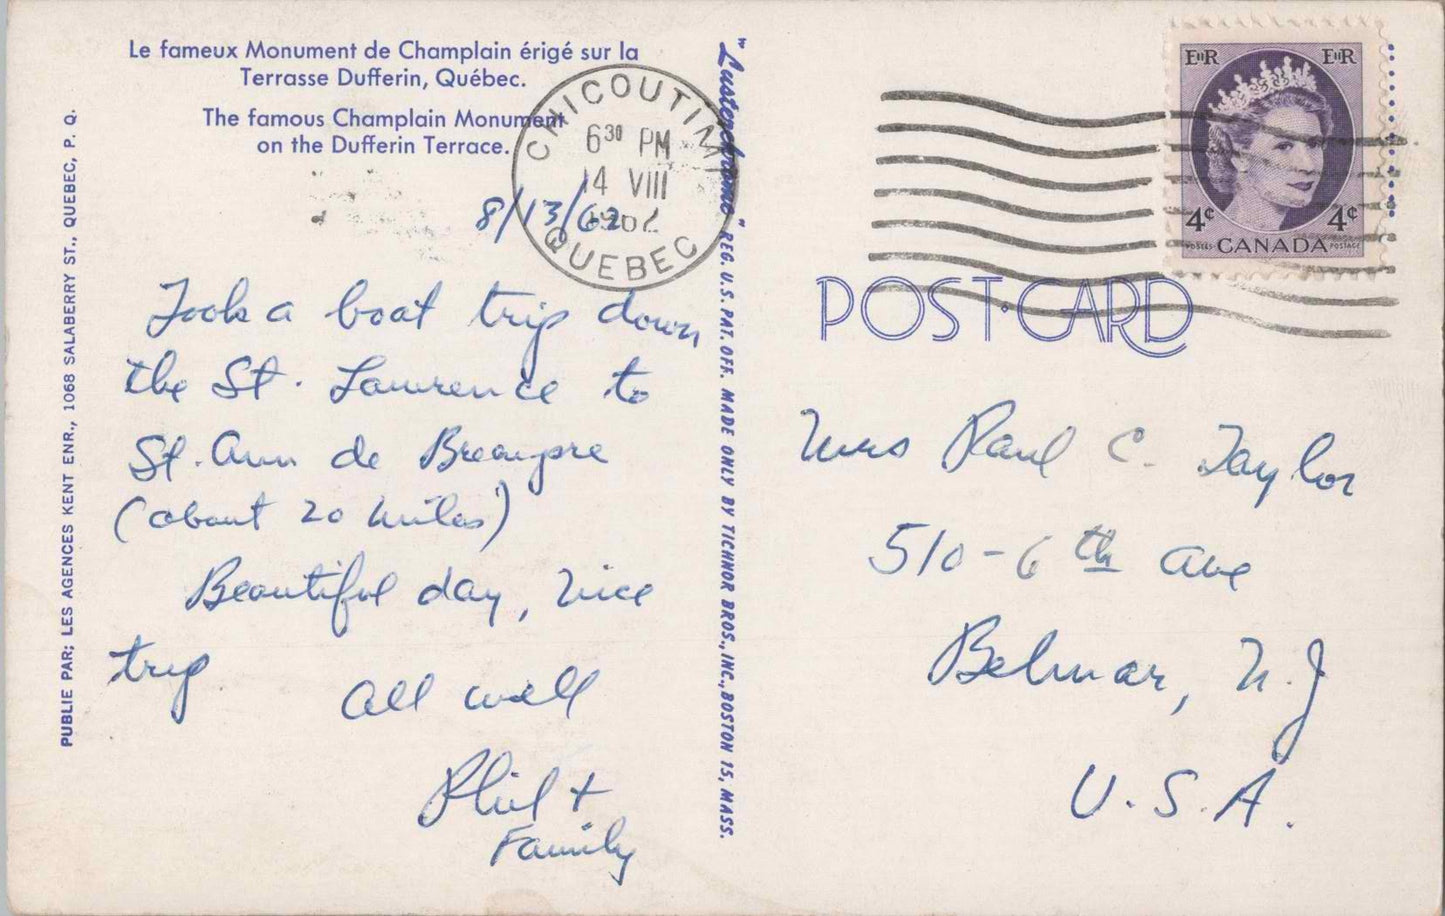 Le fameux Monument de Champlain érigé sur la
Terrasse Dufferin, Québec.
The famous Champlain Monument
on the Dufferin Terrace.
8/13/62
Took a boat trip down
the St. Lawrence to
St. Ann de Breaupre
(about 20 miles)
Beautiful day, nice
trip
All well
Phil +
Family
PUBLIE PAR; LES AGENCES KENT ENR., 1068 SALABERRY ST., QUEBEC, P. Q.
"Lusterchrome" REG. U.S. PAT. OFF. MADE ONLY BY TICHNOR BROS., INC., BOSTON 15, MASS.
CHICOUTIMI
6 30 PM
14 VIII
1962
QUEBEC
EIIR EIIR
4¢ 4¢
POSTES CANADA POSTAGE
POST·CARD
Mrs Paul C. Taylor
510-6th Ave
Belmar, N.J
U.S.A.